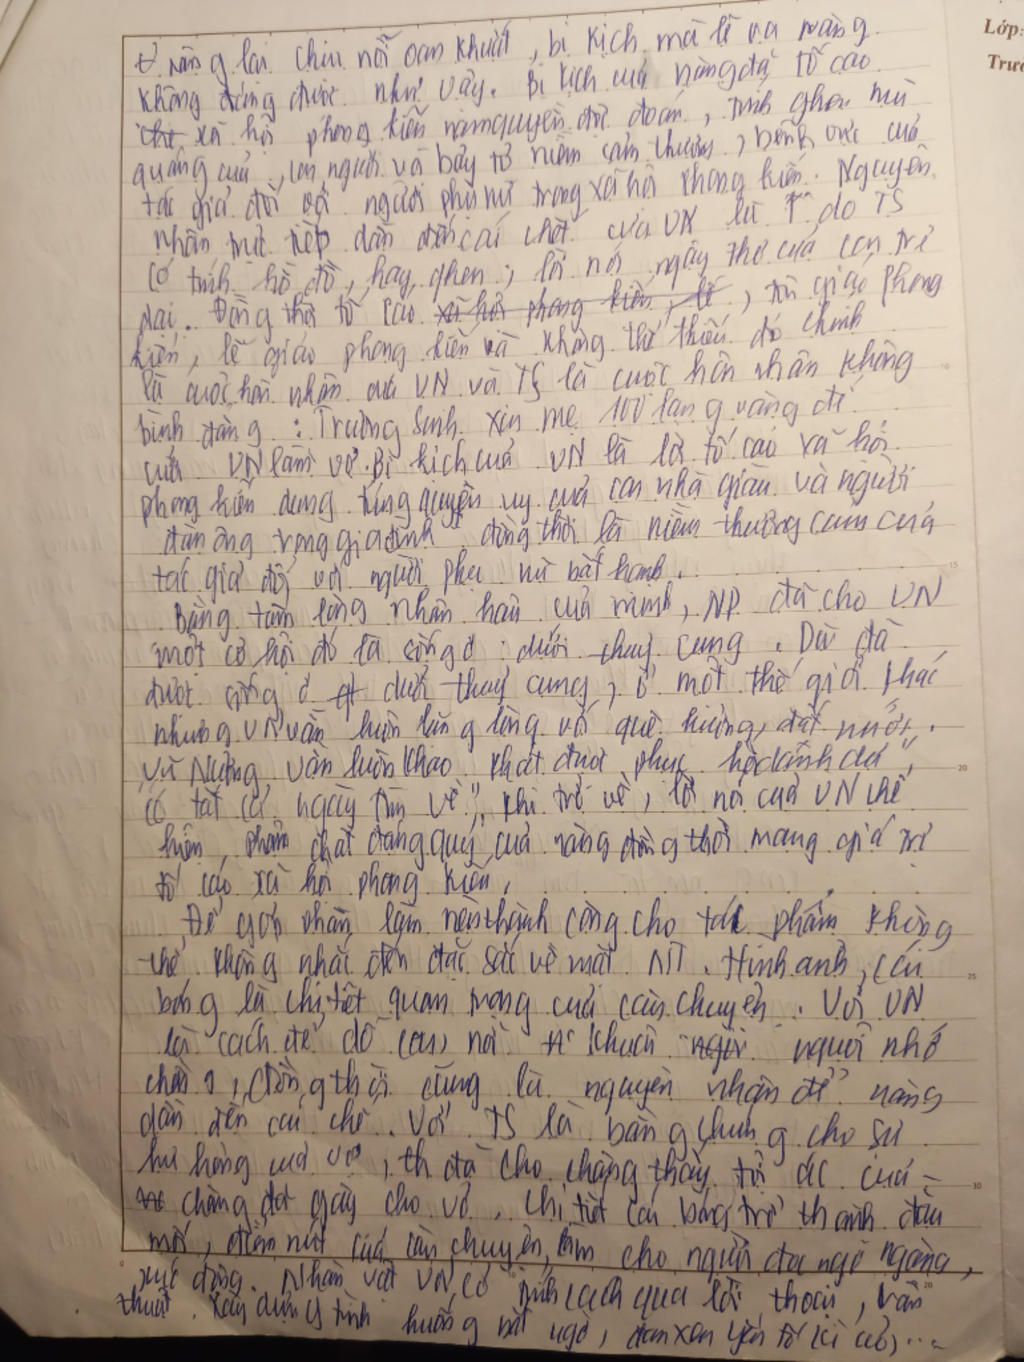 Lớp:
Trươ
nàng lại chịu nỗi oan khuất, bi kịch mà lẽ ra nàng
không đáng được như vậy. Bi kịch của nàng đã tố cáo
xã hội phong kiến nam quyền độc đoán, tính ghen mù
quáng của con người và bày tỏ niềm cảm thương, bênh vực của
tác giả đối với người phụ nữ trong xã hội phong kiến. Nguyên
nhân trực tiếp dẫn đến cái chết của VN là do TS
có tính hồ đồ, hay ghen; lời nói ngây thơ của con trẻ
dại. Đồng thời tố cáo xã hội phong kiến, lễ, giáo phong
kiến, lễ giáo phong kiến và không thể thiếu đó chính
là cuộc hôn nhân của VN và TS là cuộc hôn nhân không
bình đẳng: Trương Sinh xin mẹ 100 lạng vàng để
cưới VN làm vợ. Bi kịch của VN là lời tố cáo xã hội
phong kiến dung túng quyền uy của con nhà giàu và người
đàn ông trong gia đình đồng thời là niềm thương cảm của
tác giả đối với người phụ nữ bất hạnh.
Bằng tấm lòng nhân hậu của mình, ND đã cho VN
một cơ hội đó là sống ở dưới thuỷ cung. Dù đã
được sống ở dưới thuỷ cung, ở một thế giới khác
nhưng VN vẫn luôn nặng lòng với quê hương, đất nước.
Vũ Nương vẫn luôn khao khát được phục hồi danh dự
"có tất cả ngày tìm về", khi trở về, lời nói của VN thể
hiện phẩm chất đáng quý của nàng đồng thời mang giá trị
tố cáo xã hội phong kiến.
Để góp phần làm nên thành công cho tác phẩm không
thể không nhắc đến đặc sắc về mặt NT. Hình ảnh cái
bóng là chi tiết quan trọng của câu chuyện. Với VN
là cách để dỗ con, nói khuây người nhớ
chồng, đồng thời cũng là nguyên nhân để nàng
dẫn đến cái chế. Với TS là bằng chứng cho sự
hư hỏng của vợ, đã cho chàng thấy tội ác của
chàng đã gây cho vợ. Chi tiết cái bóng trở thành đầu
mối, điểm nút của câu chuyện, làm cho người đọc ngỡ ngàng,
xúc động. Nhân vật VN có tính cách qua lời thoại,
thuật. Xây dựng tình huống bất ngờ, đan xen yếu tố kì ảo,...